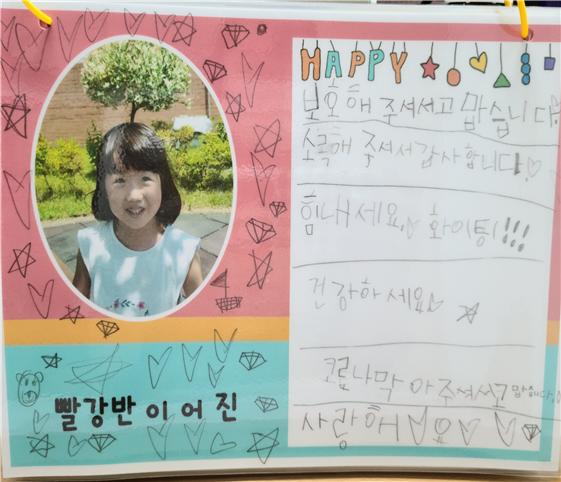 HAPPY
보호해 주셔서고 맙습니다.
소독해 주셔서감사합니다
힘내세요 화이팅!!!
건강하세요
코로나막 아 주셔서고맙습니다.
사랑해요
빨강반 이어진